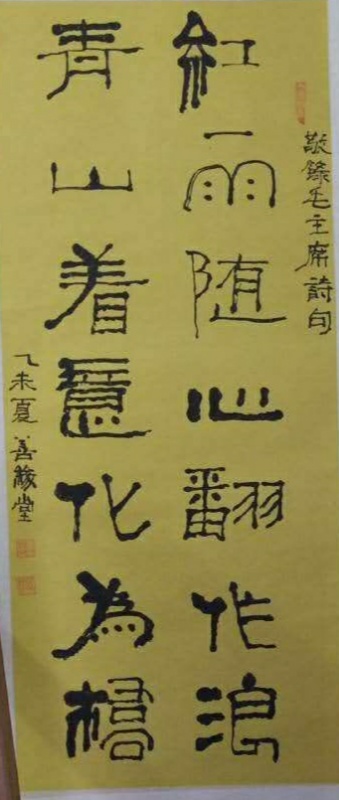 敬錄毛主席詩句
紅雨随心翻作浪
青山着意化為橋
乙未夏善緣堂